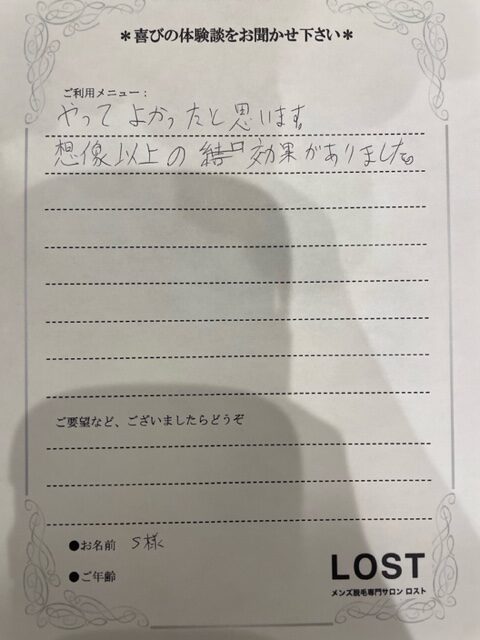 ＊喜びの体験談をお聞かせ下さい＊
ご利用メニュー：
やってよかったと思います。
想像以上の効果がありました。
ご要望など、ございましたらどうぞ
●お名前 S様
●ご年齢
LOST
メンズ脱毛専門サロン ロスト